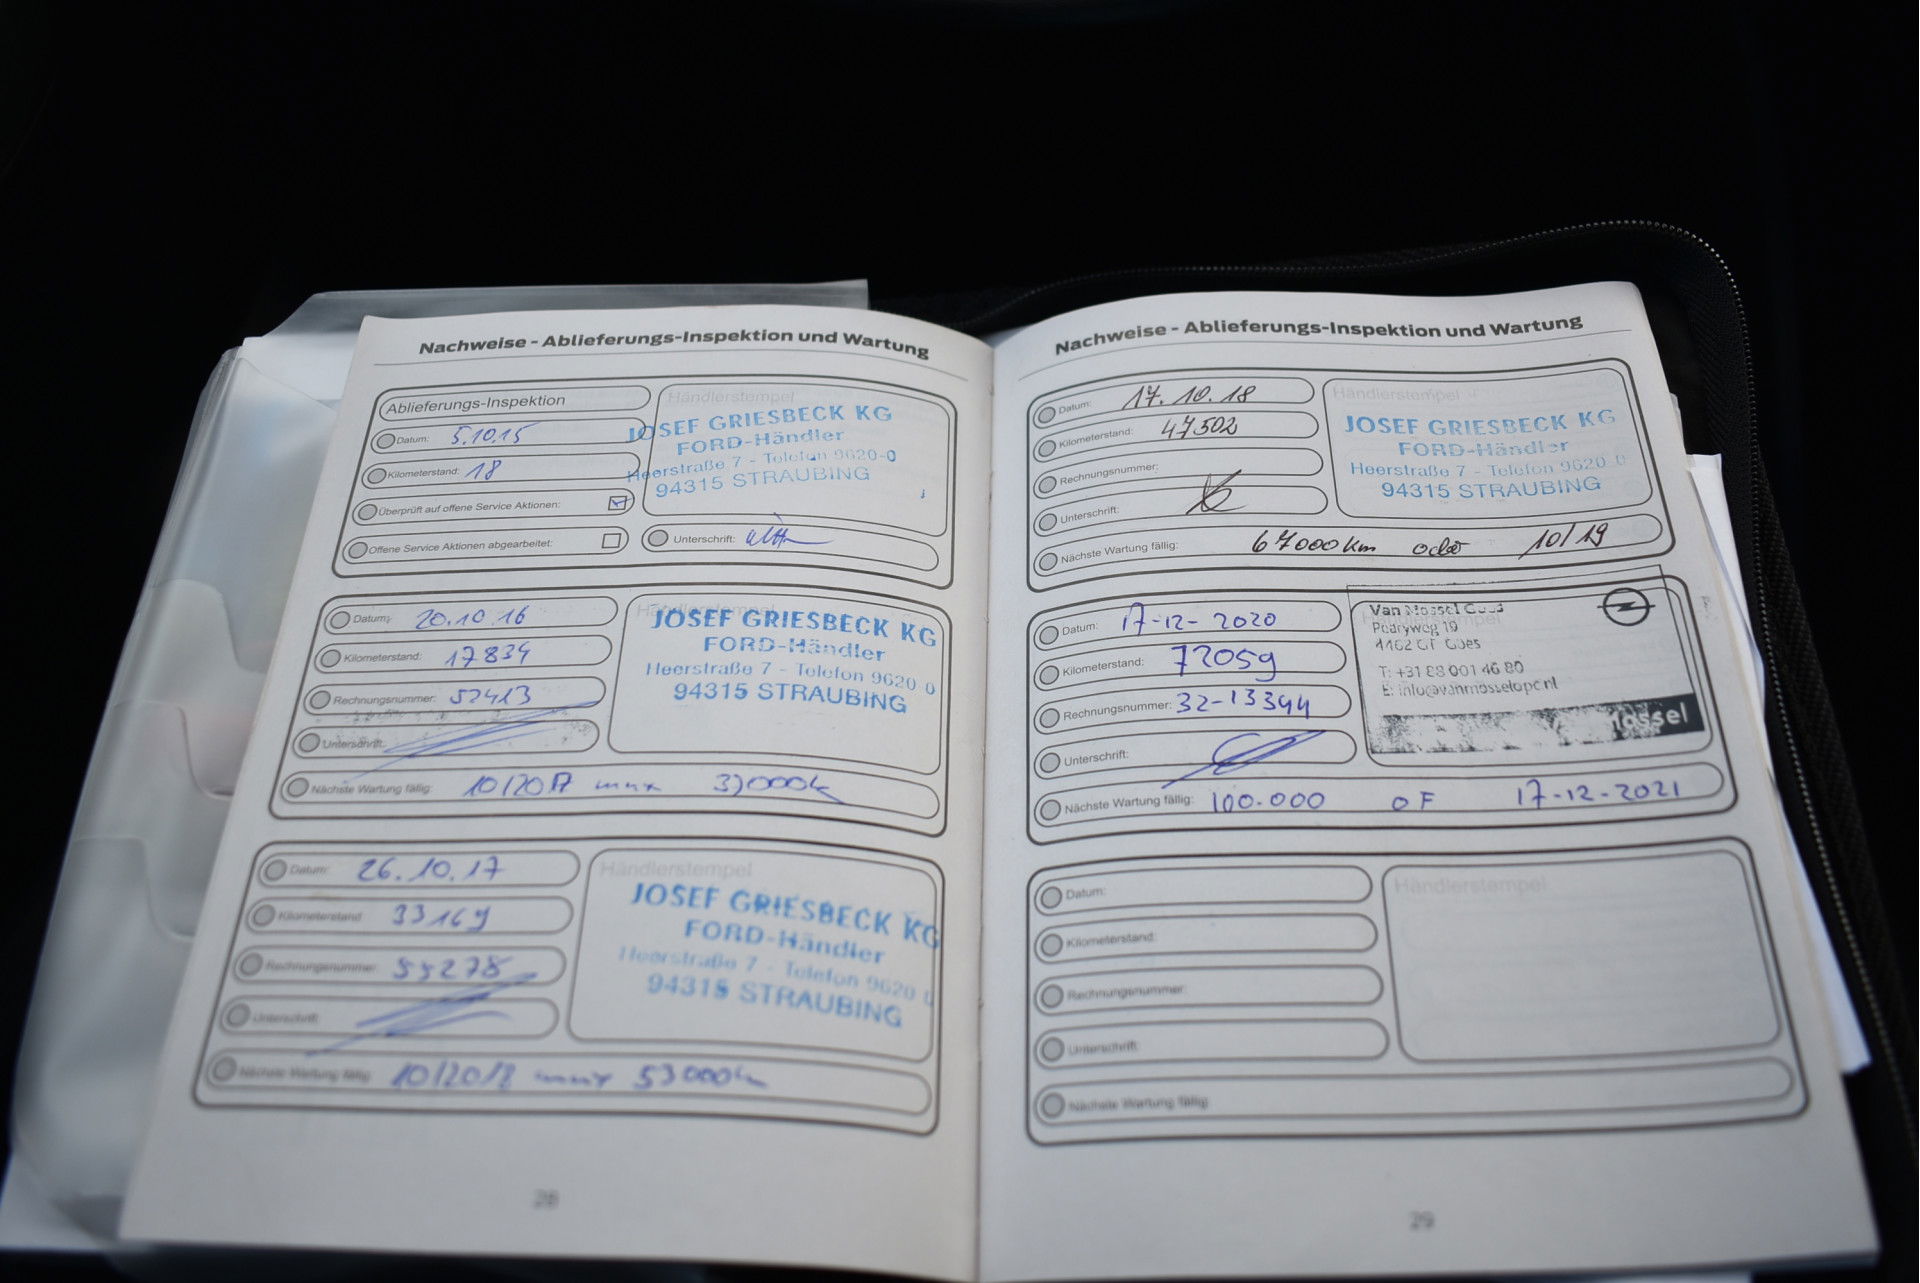 Nachweise - Ablieferungs-Inspektion und Wartung
Ablieferungs-Inspektion
Datum: 5.10.15
Kilometerstand: 18
Überprüft auf offene Service Aktionen:
Offene Service Aktionen abgearbeitet:
Händlerstempel
JOSEF GRIESBECK KG
FORD-Händler
Heerstraße 7 - Telefon 9620-0
94315 STRAUBING
Unterschrift:
Datum: 20.10.16
Kilometerstand: 17834
Rechnungsnummer: 52413
Unterschrift:
Händlerstempel
JOSEF GRIESBECK KG
FORD-Händler
Heerstraße 7 - Telefon 9620 0
94315 STRAUBING
Nächste Wartung fällig: 10/2017
Datum: 26.10.17
Kilometerstand 33169
Rechnungsnummer: 55278
Unterschrift:
Händlerstempel
JOSEF GRIESBECK KG
FORD-Händler
Heerstraße 7 - Telefon 9620
94315 STRAUBING
Nächste Wartung fällig: 10/2018 53000km
28
Nachweise - Ablieferungs-Inspektion und Wartung
Datum: 17.10.18
Kilometerstand: 47502
Rechnungsnummer:
Unterschrift:
Händlerstempel
JOSEF GRIESBECK KG
FORD-Händler
Heerstraße 7 - Telefon 9620 0
94315 STRAUBING
Nächste Wartung fällig: 67000km oder 10/19
Datum: 17-12-2020
Kilometerstand: 72059
Rechnungsnummer: 32-13394
Unterschrift:
Van Mossel Goes
19
4462 GT Goes
T: +31 88 001 46 80
E: info@vanmosselopel.nl
Mossel
Nächste Wartung fällig: 100.000 OF 17-12-2021
Datum:
Kilometerstand:
Rechnungsnummer:
Unterschrift:
Händlerstempel
Nächste Wartung fällig:
29